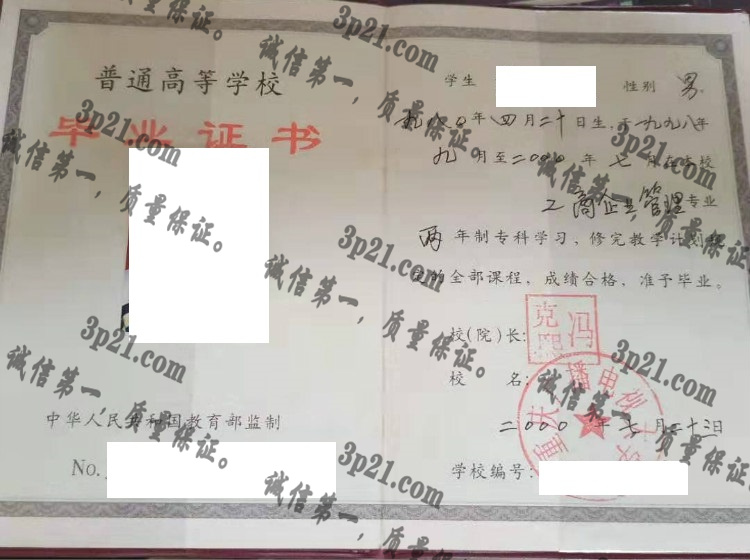 普通高等学校
毕业证书
中华人民共和国教育部监制
No.
学生 性别 男。
九八〇年四月二十日生，于一九九八年
九月至二000年七月在本校
工商企业管理专业
两年制专科学习，修完教学计划规
定的全部课程，成绩合格，准予毕业。
校(院)长：
冯克
校 名：
重庆广播电视大学
二000年七月二十三日
学校编号：
3p21.com
诚信第一，质量保证。
3p21.com
诚信第一，质量保证。
3p21.com
诚信第一，质量保证。
3p21.com
诚信第一，质量保证。
3p21.com
诚信第一，质量保证。
3p21.com
诚信第一，质量保证。